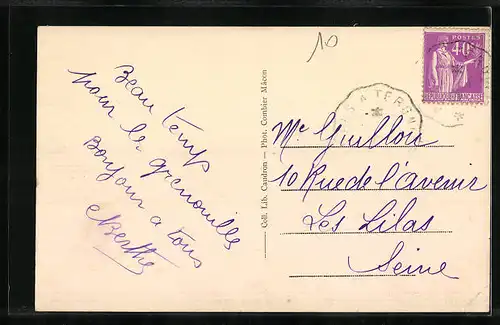 Beau temp
pour le grenouille
Bonjour a tous
Berthe
Coll. Lib. Caudron — Phot. Combier Mâcon
10
POSTES
40c
REPUBLIQUE FRANÇAISE
A TERGNI
Mc Guillou
10 Rue de l'avenir
Les Lilas
Seine